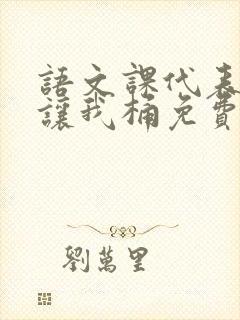 語文課代表
讓我桶免費
劉萬里